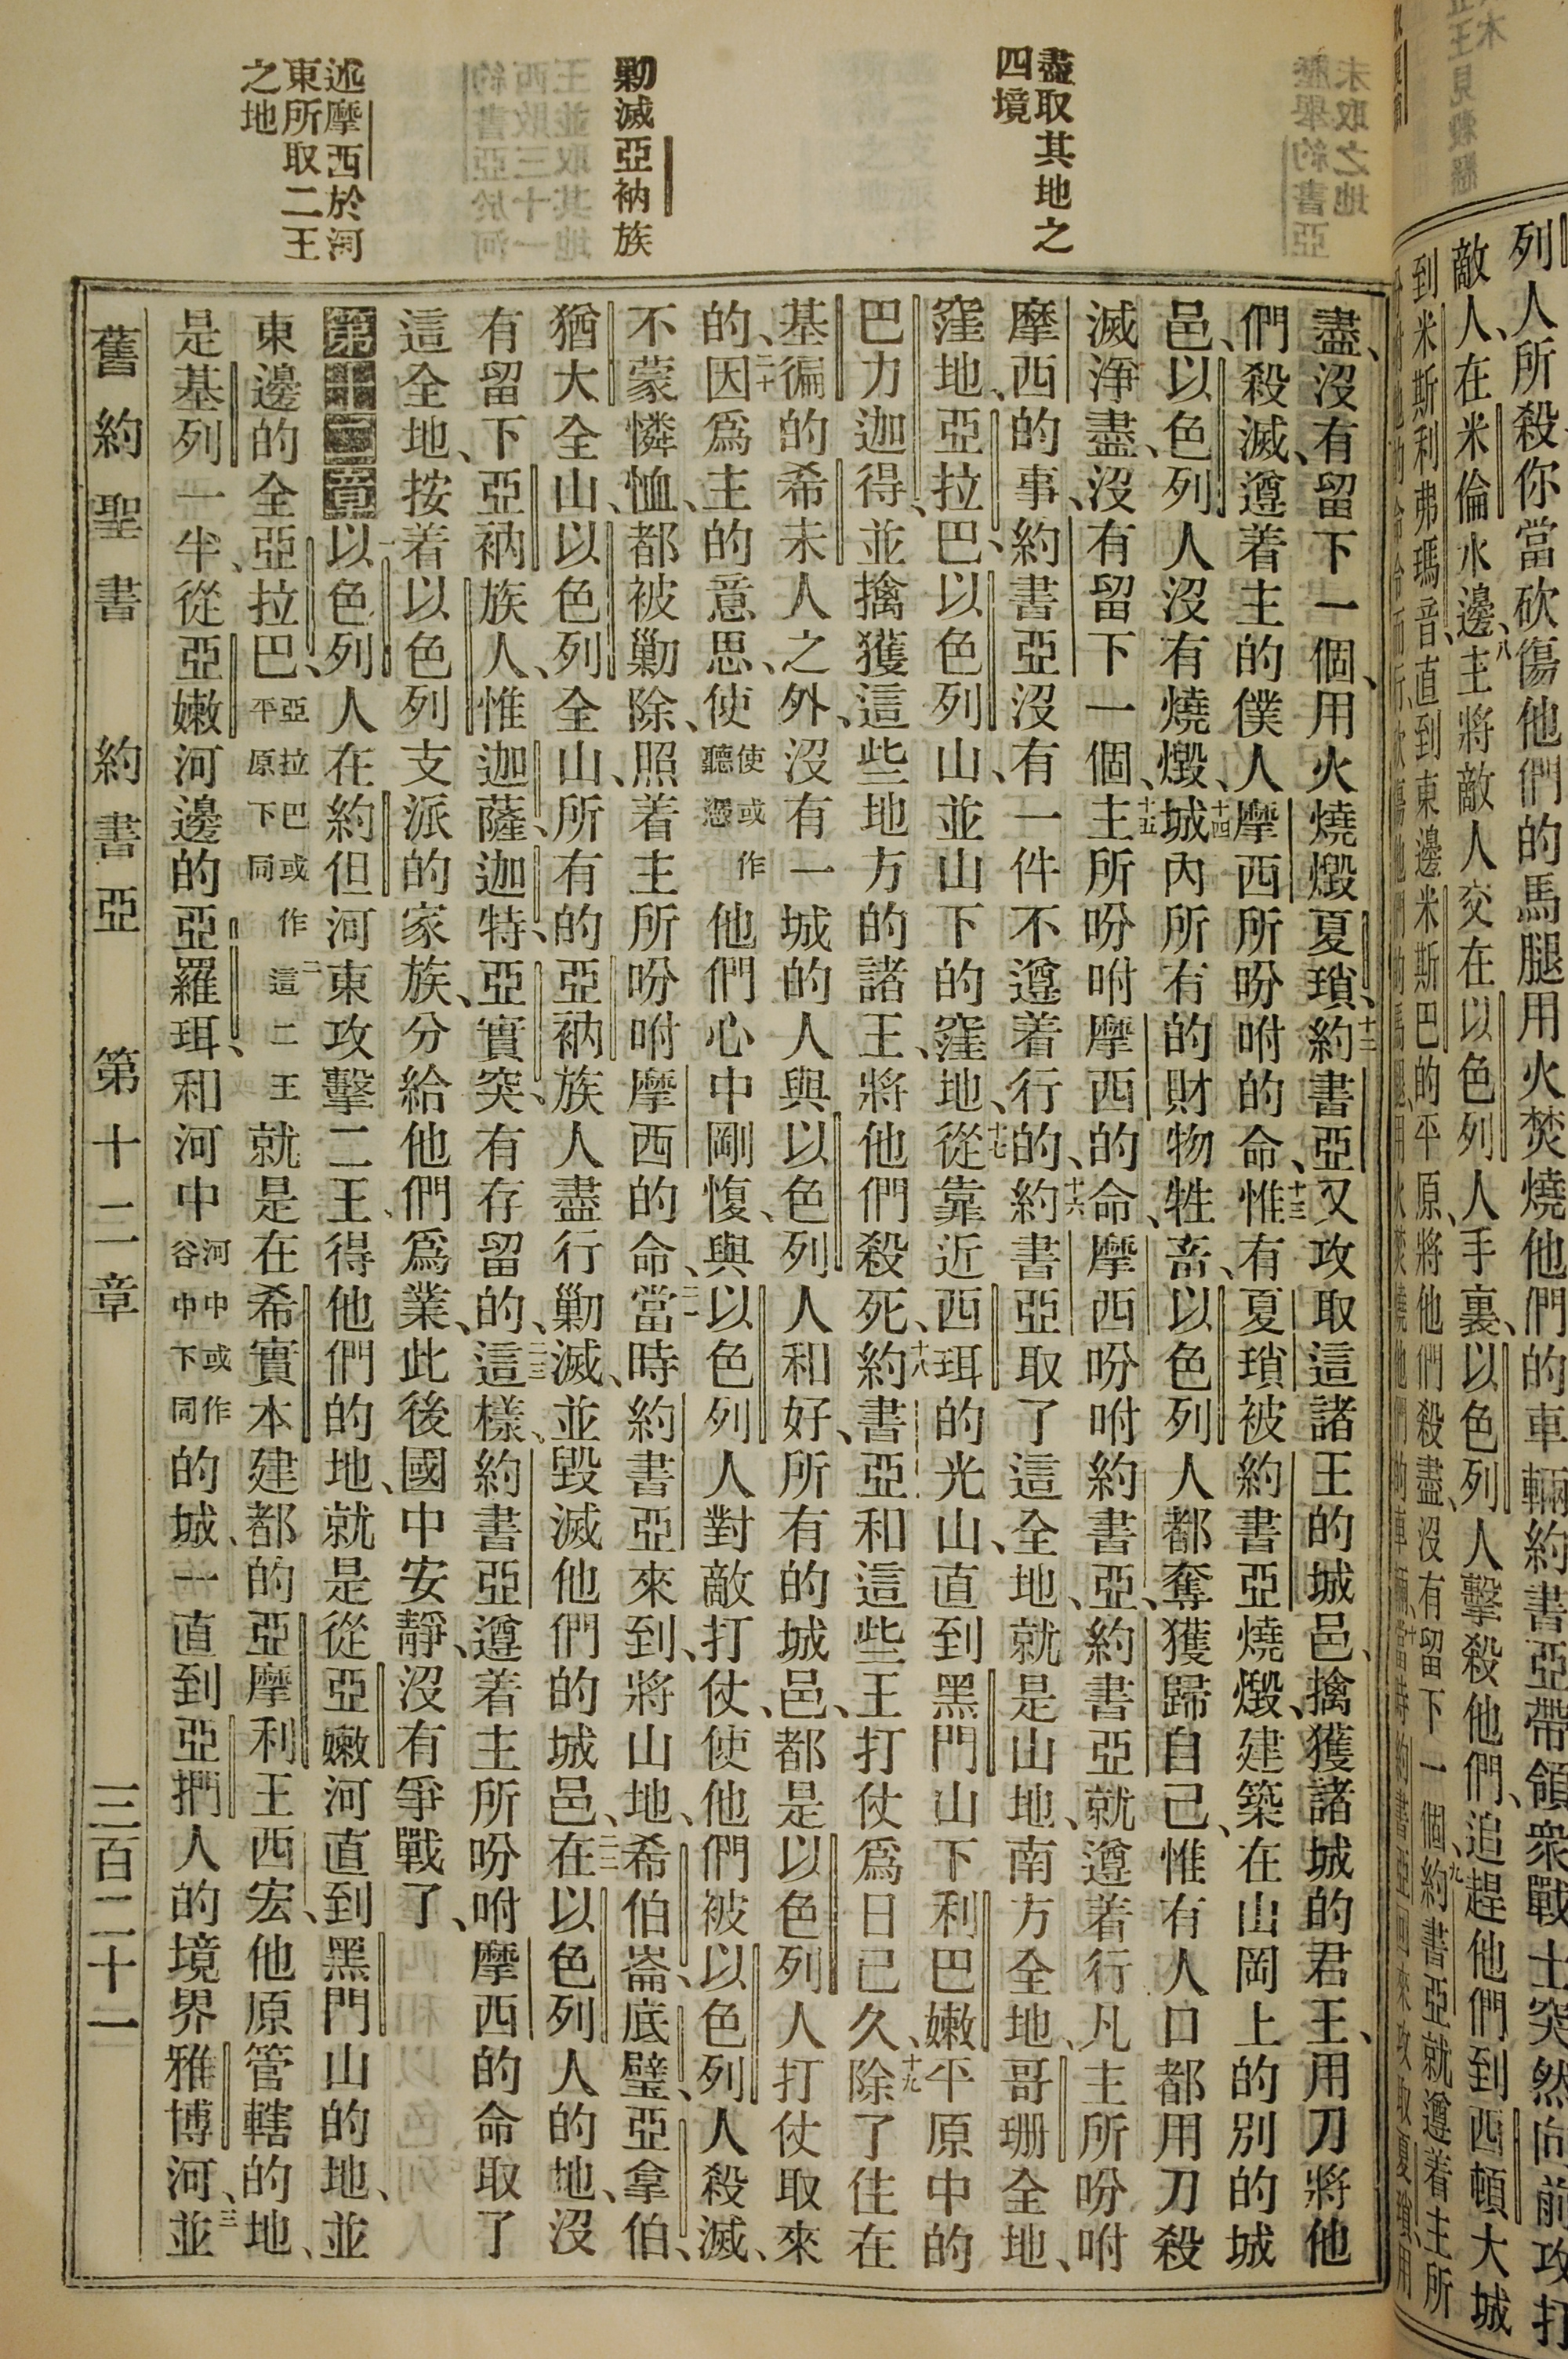 盡取其地之
四境
勦滅亞衲族
述摩西於河
東所取二王
之地
盡、沒有留下一個、用火燒燬夏瑣、十二約書亞又攻取這諸王的城邑、擒獲諸城的君王、用刀將他
們殺滅、遵着主的僕人摩西所吩咐的命、十三惟有夏瑣被約書亞燒燬、建築在山岡上的別的城
邑、以色列人沒有燒燬、十四城內所有的財物牲畜、以色列人都奪獲歸自己、惟有人口都用刀殺
滅淨盡、沒有留下一個、十五主所吩咐摩西的命、摩西吩咐約書亞、約書亞就遵着行凡主所吩咐
摩西的事、約書亞沒有一件不遵着行的、十六約書亞取了這全地、就是山地、南方全地、哥珊全地、
窪地、亞拉巴、以色列山、並山下的窪地、十七從靠近西珥的光山、直到黑門山下利巴嫩平原中的
巴力迦得、並擒獲這些地方的諸王、將他們殺死、十八約書亞和這些王打仗爲日已久、十九除了住在
基徧的希未人之外、沒有一城的人與以色列人和好、所有的城邑、都是以色列人打仗取來
的、二十因爲主的意思、使使或作聽憑他們心中剛愎、與以色列人對敵打仗、使他們被以色列人殺滅、
不蒙憐恤、都被勦除、照着主所吩咐摩西的命、二一當時約書亞來到、將山地、希伯崙、底璧、亞拿伯、
猶大全山、以色列全山、所有的亞衲族人盡行勦滅、並毀滅他們的城邑、二二在以色列人的地、沒
有留下亞衲族人、惟迦薩、迦特、亞實突、有存留的、二三這樣、約書亞遵着主所吩咐摩西的命取了
這全地、按着以色列支派的家族、分給他們爲業、此後國中安靜、沒有爭戰了、
第十二章一以色列人在約但河東攻擊二王、得他們的地、就是從亞嫩河直到黑門山的地、並
東邊的全亞拉巴、亞拉巴或作平原下同二這二王就是在希實本建都的亞摩利王西宏、他原管轄的地、
是基列一半、從亞嫩河邊的亞羅珥、和河中河中或作谷中下同的城、一直到亞捫人的境界雅博河、三並
舊約聖書　約書亞　第十二章　三百二十一
列人所殺你當砍傷他們的馬腿用火焚燒他們的車輛約書亞帶領衆戰士突然向前攻打
敵人、在米倫水邊、八主將敵人交在以色列人手裏、以色列人擊殺他們、追趕他們到西頓大城
到米斯利弗瑪音、直到東邊米斯巴的平原、將他們殺盡、沒有留下一個、九約書亞就遵着主所